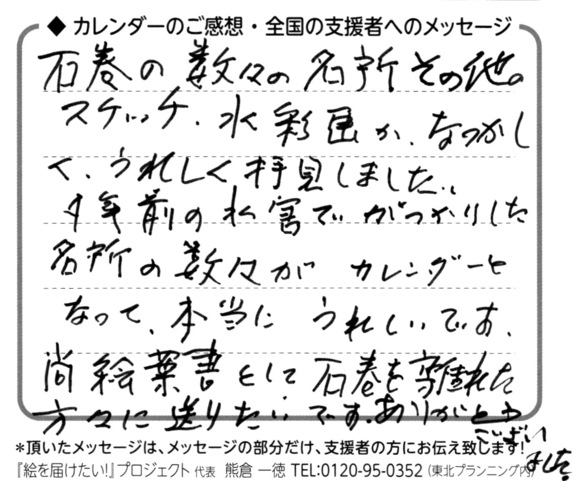 ◆ カレンダーのご感想・全国の支援者へのメッセージ
石巻の数々の名所その他の
スケッチ、水彩画が、なつかし
く、うれしく拝見しました。
年前の水害でがっかりした
名所の数々がカレンダーと
なって、本当にうれしいです、
尚絵葉書として石巻を離れた
方々に送りたいです。ありがとう
ござい
ました。
*頂いたメッセージは、メッセージの部分だけ、支援者の方にお伝え致します!
『絵を届けたい!』プロジェクト 代表 熊倉 一徳 TEL:0120-95-0352 (東北プランニング内)